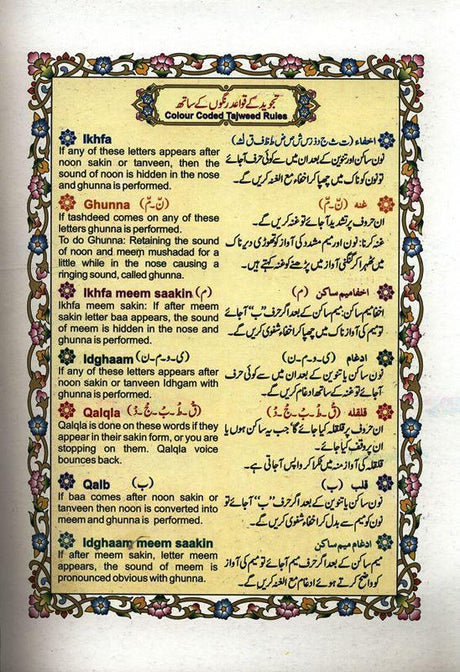 تجوید کے قواعد رنگوں کے ساتھ
Colour Coded Tajweed Rules
Ikhfa
If any of these letters appears after
noon sakin or tanveen, then the
sound of noon is hidden in the nose
and ghunna is performed.
اخفاء (ت ث ج د ذ ز س ش ص ض ط ظ ف ق ك)
نون ساکن اور تنوین کے بعد ان میں سے کوئی حرف آجائے
تو نون کو ناک میں چھپا کر اخفاء مع الغنہ کریں گے۔
Ghunna (نّ - مّ)
If tashdeed comes on any of these
letters ghunna is performed.
To do Ghunna: Retaining the sound
of noon and meem mushadad for a
little while in the nose causing a
ringing sound, called ghunna.
غنہ (نّ - مّ)
ان حروف پر تشدید آجائے تو غنہ کریں گے۔
غنہ کرنا: نون اور میم مشدد کی آواز کو تھوڑی دیر ناک
میں ٹھہرا کر گنگنی آواز میں پڑھنے کو غنہ کہتے ہیں۔
Ikhfa meem saakin (م)
Ikhfa meem sakin: If after meem
sakin letter baa appears, the sound
of meem is hidden in the nose and
ghunna is performed.
اخفا میم ساکن (م)
اخفا میم ساکن: میم ساکن کے بعد اگر حرف ”ب“ آجائے
تو میم کی آواز ناک میں چھپا کر اخفاء شفوی کریں گے۔
Idghaam (ی - و - م - ن)
If any of these letters appears after
noon sakin or tanveen Idhgam with
ghunna is performed.
ادغام (ی - و - م - ن)
نون ساکن یا تنوین کے بعد ان میں سے کوئی حرف
آجائے تو غنہ کے ساتھ ادغام کریں گے۔
Qalqla (قْ - طْ - بْ - جْ - دْ)
Qalqla is done on these words if they
appear in their sakin form, or you are
stopping on them. Qalqla voice
bounces back.
قلقلہ (قْ - طْ - بْ - جْ - دْ)
ان حروف پر قلقلہ کیا جائے گا جب یہ ساکن ہوں یا
ان پر وقف کیا جائے۔
قلقلہ کی آواز منہ میں ٹکرا کر واپس آجاتی ہے۔
Qalb (ب)
If baa comes after noon sakin or
tanveen then noon is converted into
meem and ghunna is performed.
قلب (ب)
نون ساکن یا تنوین کے بعد اگر حرف ”ب“ آجائے تو
نون کو میم سے بدل کر اخفاء شفوی کریں گے۔
Idghaam meem saakin
If after meem sakin, letter meem
appears, the sound of meem is
pronounced obvious with ghunna.
ادغام میم ساکن
میم ساکن کے بعد اگر حرف میم آجائے تو میم کی آواز
کو واضح کرتے ہوئے ادغام مع الغنہ کریں گے۔